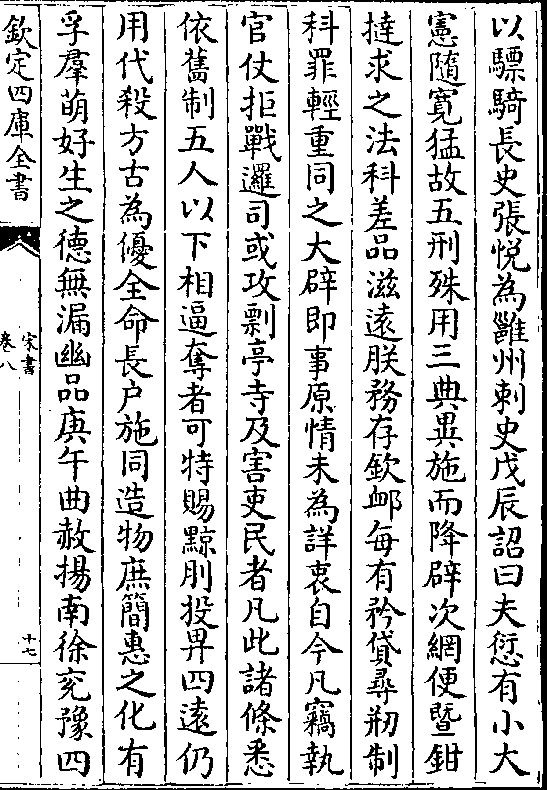 以驃騎長史張悦為雝州刺史戊辰詔曰夫愆有小大
憲隨寛猛故五刑殊用三典異施而降辟次網便暨鉗
撻求之法科差品滋遠朕務存欽䘏每有矜貸尋刱制
科罪輕重同之大辟即事原情未為詳衷自今凡竊執
官仗拒戰邏司或攻剽亭寺及害吏民者凡此諸條悉
依舊制五人以下相逼奪者可特賜黥刖投畀四遠仍
用代殺方古為優全命長户施同造物庶簡惠之化有
孚羣萌好生之德無漏幽品庚午曲赦揚南徐兖豫四
欽定四庫全書
宋書
卷八
十七